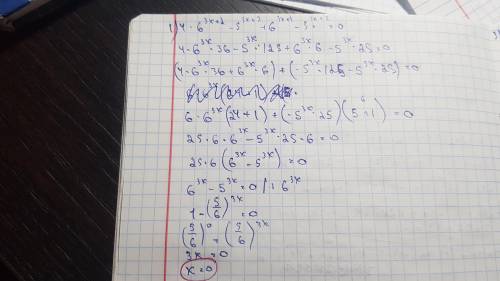 1) 4·6^{3x+2} - 5^{3x+3} + 6^{3x+1} - 5^{3x+2} = 0
4·6^{3x}·36 - 5^{3x}·125 + 6^{3x}·6 - 5^{3x}·25 = 0
(4·6^{3x}·36 + 6^{3x}·6) + (-5^{3x}·125 - 5^{3x}·25) = 0
6·6^{3x}(24+1) + (-5^{3x}·25)(5+1) = 0
6
25·6·6^{3x} - 5^{3x}·25·6 = 0
25·6(6^{3x} - 5^{3x}) = 0
6^{3x} - 5^{3x} = 0 /: 6^{3x}
1 - (5/6)^{3x} = 0
(5/6)^0 = (5/6)^{3x}
3x = 0
x = 0